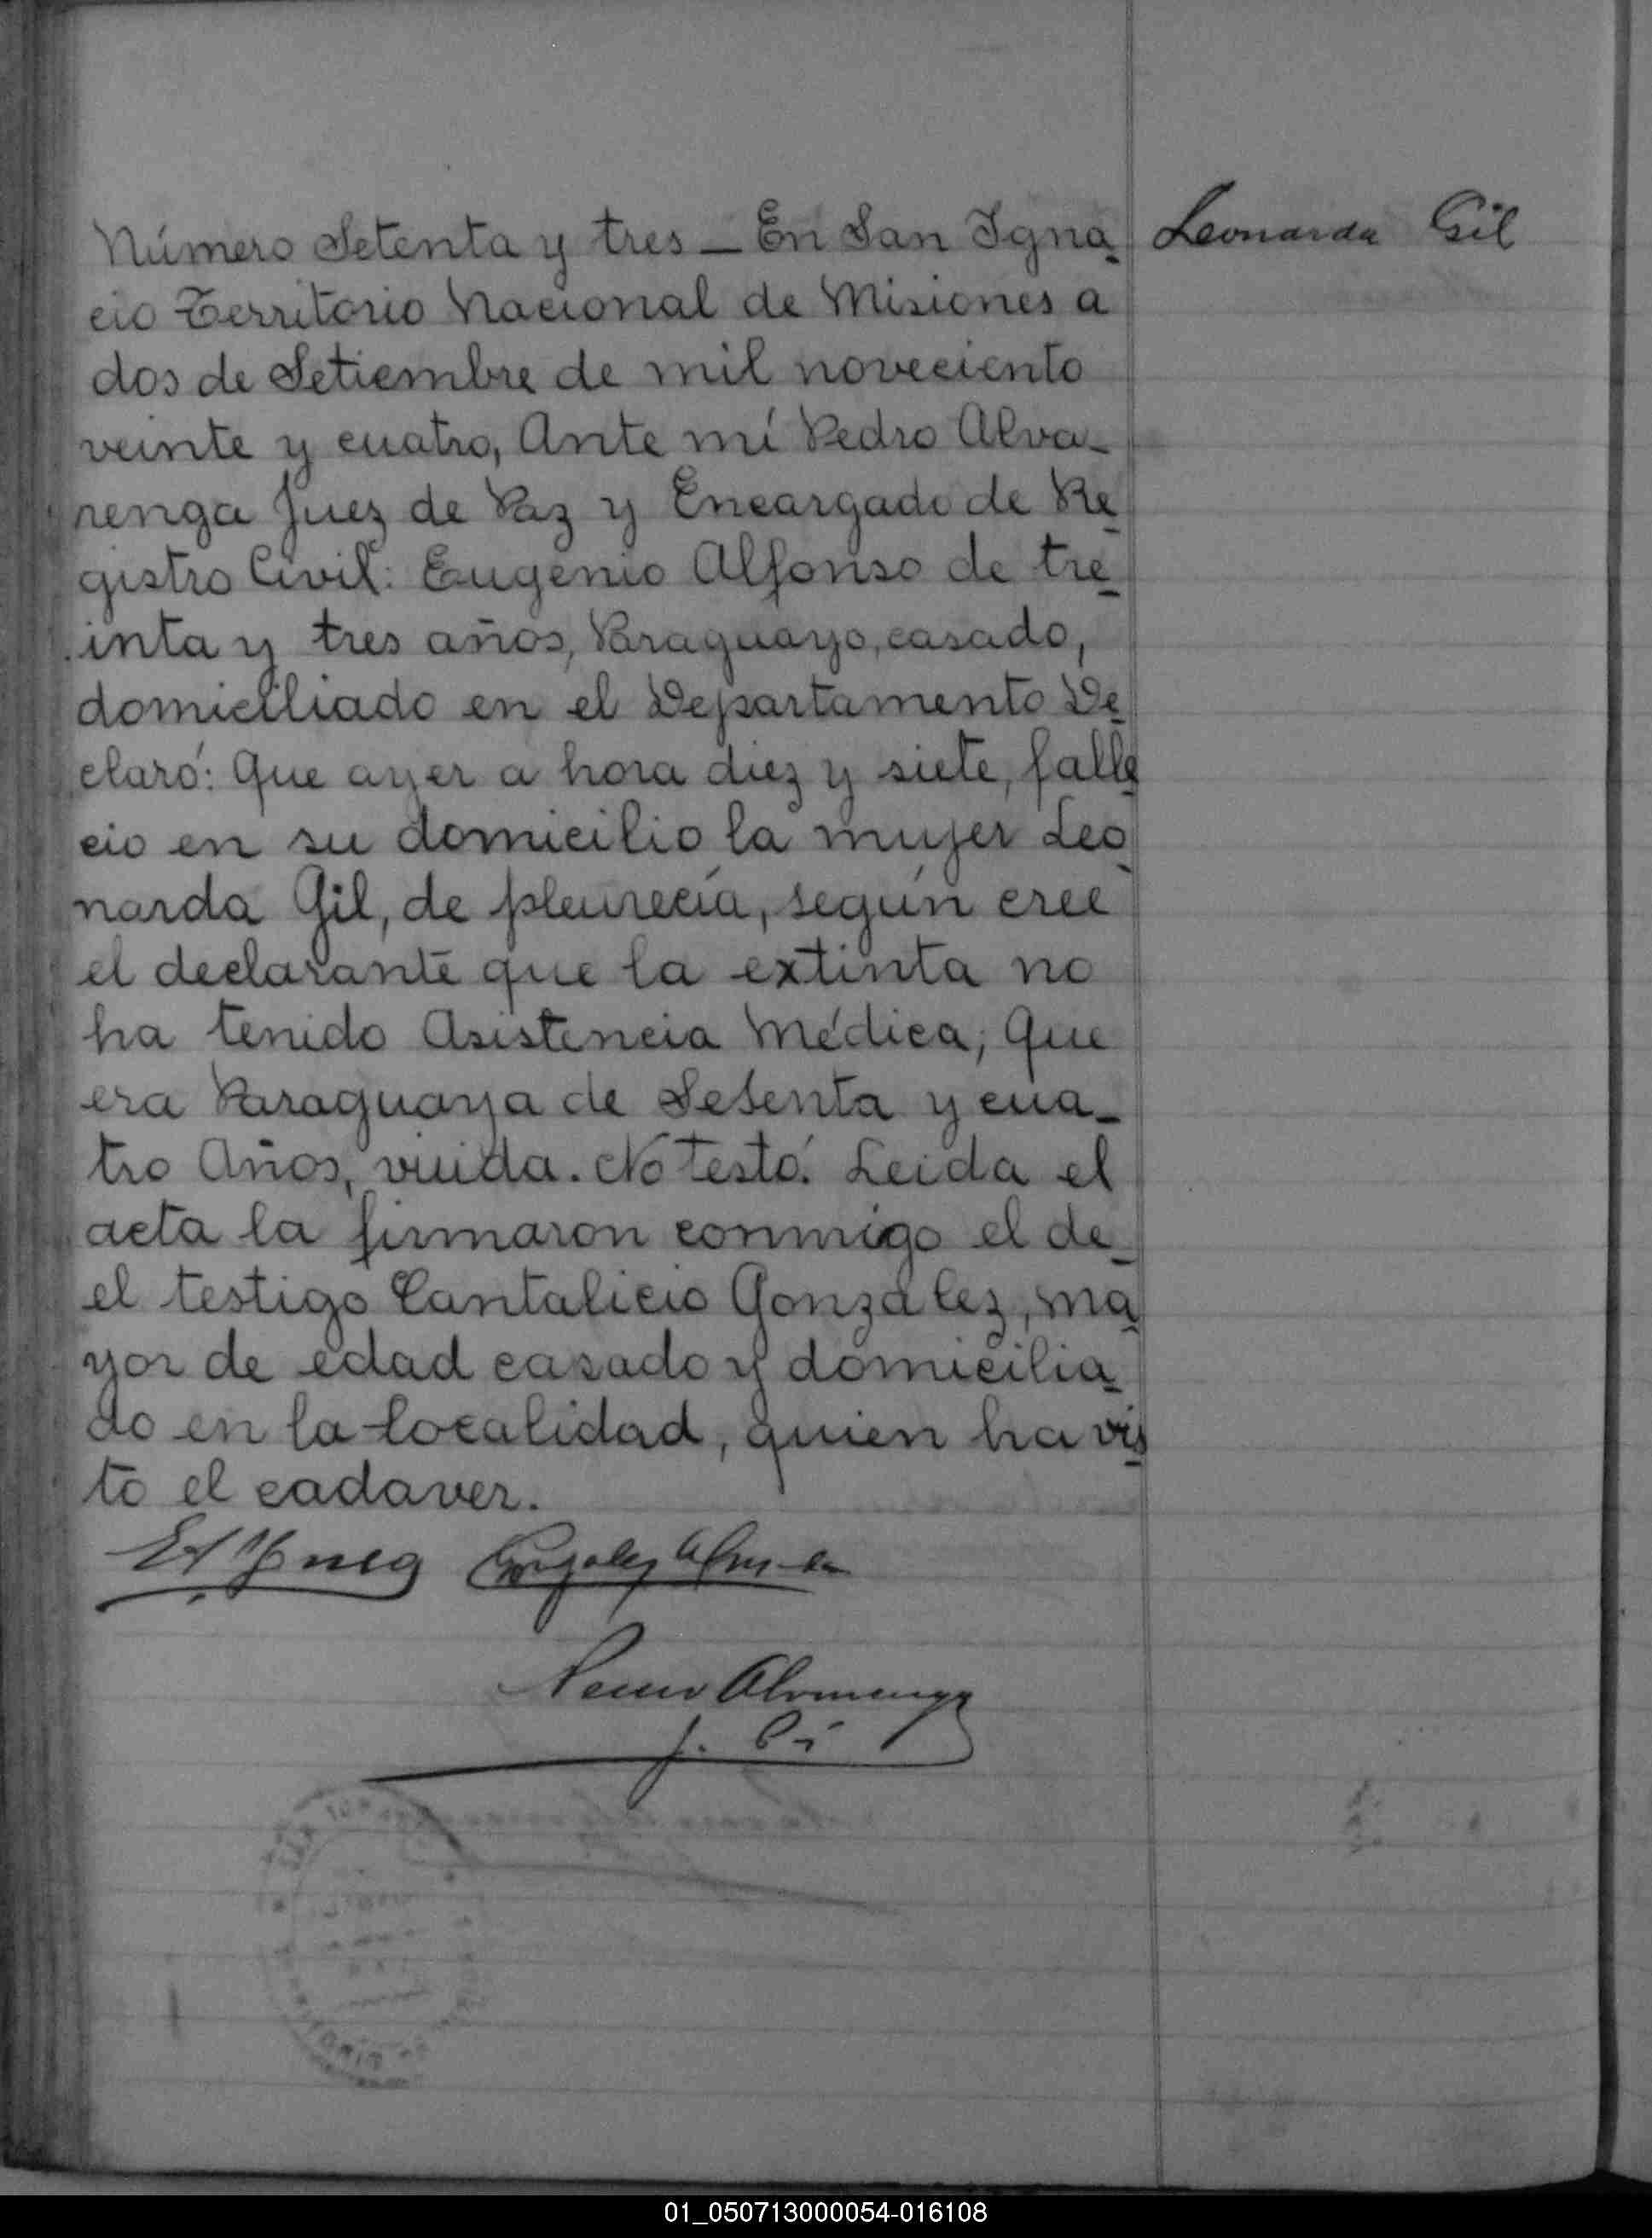 Número Setenta y tres — En San Igna
Leonarda Gil
cio Territorio Nacional de Misiones a
dos de Setiembre de mil noveciento
veinte y cuatro, Ante mí Pedro Alva-
renga Juez de Paz y Encargado de Re
gistro Civil: Eugenio Alfonso de tre
inta y tres años, Paraguayo, casado,
domiciliado en el Departamento De
claró: Que ayer a hora diez y siete, falle
cio en su domicilio la mujer Leo
narda Gil, de pleurecía, según cree
el declarante que la extinta no
ha tenido Asistencia Médica; Que
era Paraguaya de Sesenta y cua-
tro Años, viuda. No testó. Leida el
acta la firmaron conmigo el de-
el testigo Cantalicio Gonzalez, ma
yor de edad casado y domicilia
do en la localidad, quien ha vis
to el cadaver.
Pedro Alvarenga
01_050713000054-016108